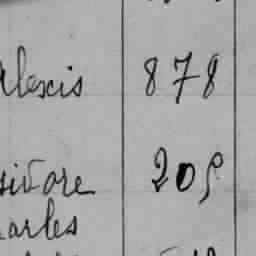 Alexis 878
sidore 209
arles